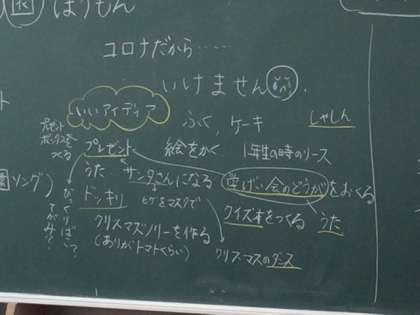 ほうもん
コロナだから・・・・
いけません
いいアイディア
ふく、ケーキ
しゃしん
プレゼント
ボックスを
つくる
プレゼント
絵をかく
1年生の時のリース
うた
サンタさんになる
学げい会のどうがをおくる
ソング)
ドッキリ
ヒゲをマスクで
クイズオをつくる
うた
びっくりばこ?
てがみ?
クリスマスツリーを作る
(ありがトマトくらい)
クリスマスのダンス